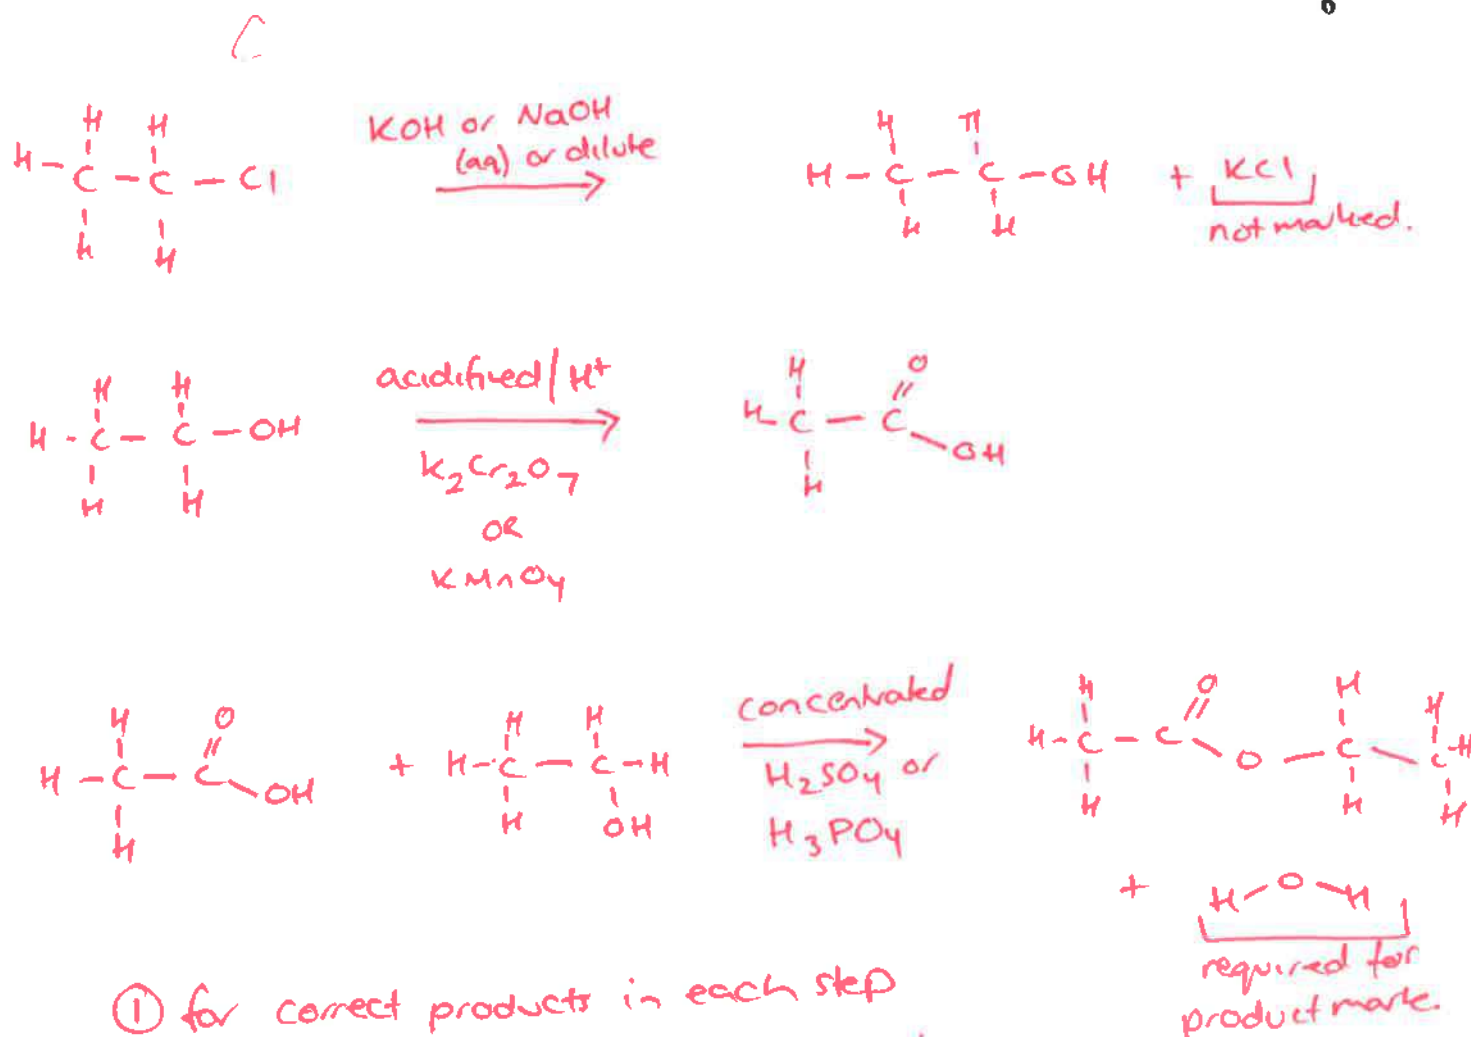 H H
H - C - C - Cl
H H
KOH or NaOH
(aq) or dilute
H H
H - C - C - OH + KCl
H H
not marked.
H H
H - C - C - OH
H H
acidifived / H⁺
K₂Cr₂O₇
OR
KMnO₄
H O
H - C - C
OH
H
H O
H - C - C
OH
H
+ H - C - C - H
H H
H OH
concentrated
H₂SO₄ or
H₃PO₄
H O H H
H - C - C O - C - C - H
H H H
+ H - O - H
required for
product mark.
① for correct products in each step